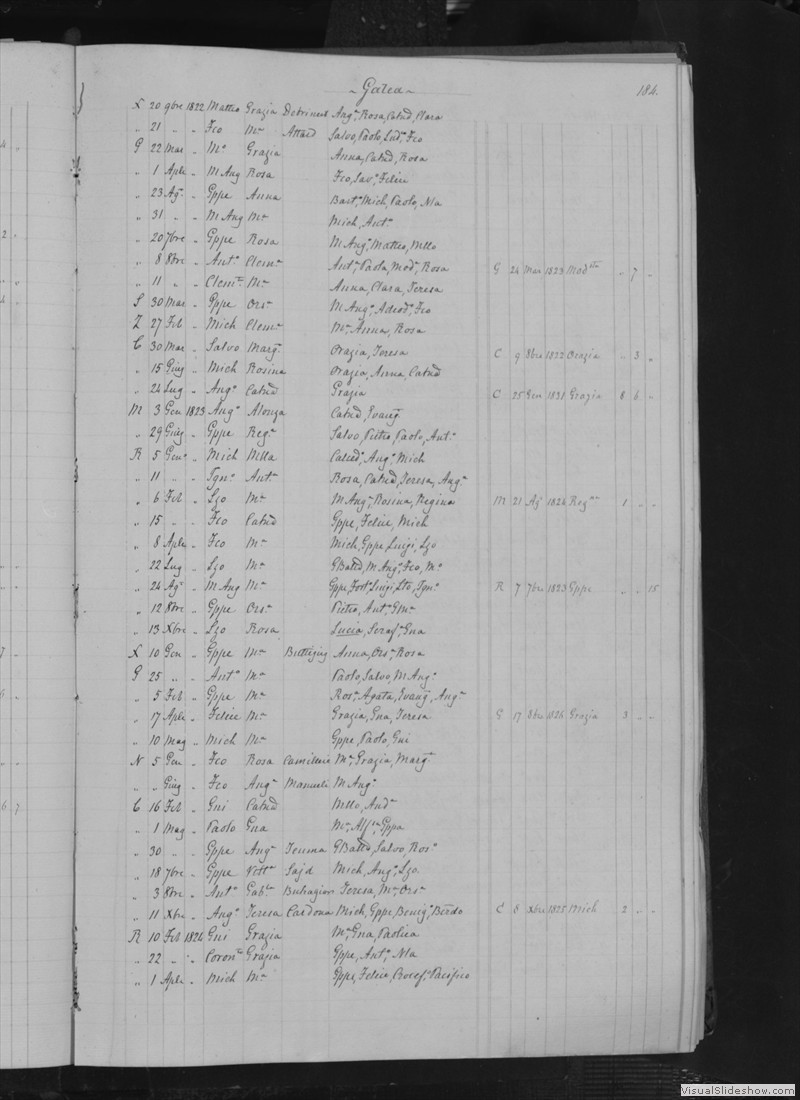 ~Galea~
184.
X 20 9bre 1822 Matteo Grazia Debrincat Angª, Rosa, Catnd, Clara
" 21 " " Fco Mª Attard Salvo, Paolo, Ludº, Fco
G 22 Mar " Mº Grazia Anna, Catnd, Rosa
" 1 Aple " M Ang Rosa Fco, Savº, Felice
" 23 Agº " Gppe Anna Bartº, Mich, Paolo, Nla
" 31 " " M Ang Mª Mich, Antª
" 20 7bre " Gppe Rosa M Angº, Matteo, Mllo
" 8 8bre " Antº Clemª Antº, Paola, Modª, Rosa G 24 Mar 1823 Modtta " 7 "
" 11 " " Clemte Mª Anna, Clara, Teresa
S 30 Mar " Gppe Orsª M Angº, Adeodº, Fco
Z 27 Feb " Mich Clemª Mª, Anna, Rosa
C 30 Mar " Salvo Margª Grazia, Teresa C 9 8bre 1822 Grazia " 3 "
" 15 Giug " Mich Rosina Grazia, Anna, Catnd
" 24 Lug " Angº Catnd Grazia C 25 Gen 1831 Grazia 8 6 "
M 3 Gen 1823 Angº Alonza Catnd, Evangª
" 29 Giug " Gppe Regª Salvo, Pietro, Paolo, Antº
R 5 Genº " Mich Mlla Calcedº, Angº, Mich
" 11 " " Ignº Antª Rosa, Catnd, Teresa, Angª
" 6 Feb " Lzo Mª M Angª, Rosina, Regina M 21 Agº 1824 Regna 1 " "
" 15 " " Fco Catnd Gppe, Felice, Mich
" 8 Aple " Fco Mª Mich, Gppe, Luigi, Lzo
" 22 Lug " Lzo Mª GBatta, M Angº, Fco, Mº
" 24 Agº " M Ang Mª Gppe, Fortº, Luigi, Lto, Ignº R 7 7bre 1823 Gppe " " 15
" 12 8bre " Gppe Orsª Pietro, Antº, GMª
" 13 Xbre " Lzo Rosa Lucia, Serafª, Gna
X 10 Gen " Gppe Mª Buttigieg Anna, Orsª, Rosa
G 25 " " Antº Mª Paolo, Salvo, M Angº
" 5 Feb " Gppe Mª Rosª, Agata, Evangª, Angª
" 17 Aple " Felice Mª Grazia, Gna, Teresa G 17 8bre 1826 Grazia 3 " "
" 10 Mag " Mich Mª Gppe, Paolo, Gni
N 5 Gen " Fco Rosa Camilleri Mª, Grazia, Margª
" " Giug " Fco Angª Manueli M Angª
C 16 Feb " Gni Catnd Mllo, Andª
" 1 Mag " Paolo Gna Mª, Alfsa, Gppa
" 30 " " Gppe Angª Teuma GBatta, Salvo, Rosº
" 18 7bre " Gppe Vittª Sajd Mich, Angº, Lzo.
" 3 8bre " Antº Gabla Buhagiar Teresa, Mª, Orsª
" 11 Xbre " Angº Teresa Cardona Mich, Gppe, Benigº, Berdo C 8 Xbre 1825 Mich 2 " "
R 10 Feb 1824 Gni Grazia Mª, Gna, Paolica
" 22 " " Coronto Grazia Gppe, Antº, Nla
" 1 Aple " Mich Mª Gppe, Felice, Crocefº, Pacifico
VisualSlideshow.com